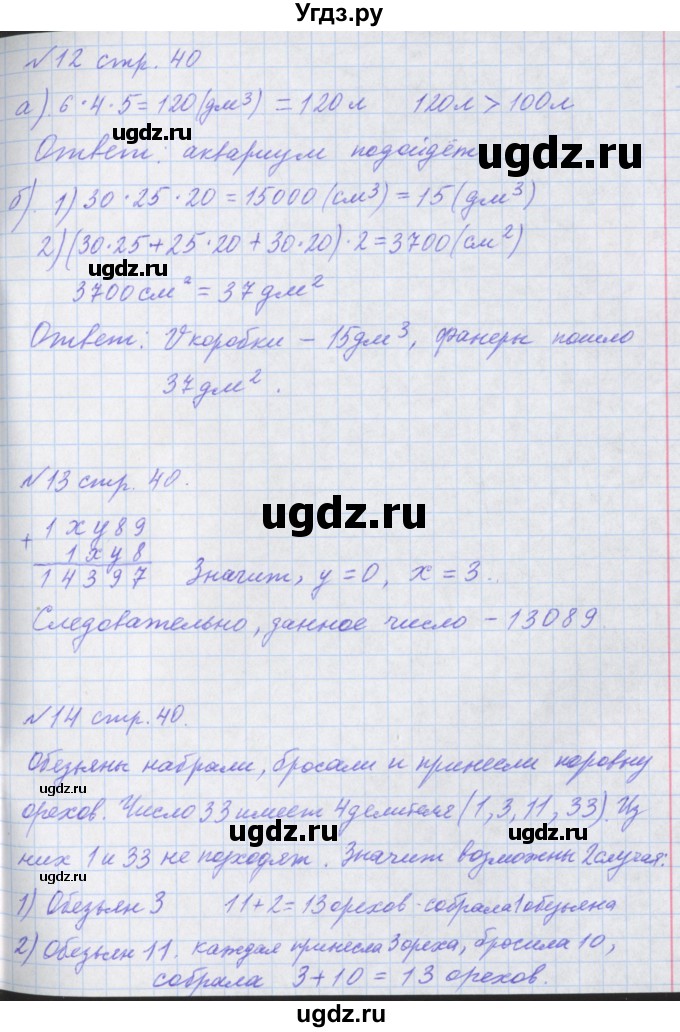 Угдз.ру
№12 стр. 40
а). 6·4·5=120(дм³) = 120л 120л > 100л
ugdz.ru
Ответ: аквариум подойдёт
ugdz.ru
б). 1) 30·25·20 = 15000 (см³) = 15 (дм³)
2) (30·25+25·20+30·20)·2=3700(см²)
ugdz.ru
3700см² = 37дм²
Ответ: V коробки – 15дм³, фанеры пошло
ugdz.ru
37дм².
№13 стр. 40.
ugdz.ru
+ 1xy89
1xy8
14397 Значит, y=0, x=3.
ugdz.ru
Следовательно, данное число – 13089
№14 стр. 40.
ugdz.ru
Обезьяны набрали, бросали и принесли поровну
орехов. Число 33 имеет 4 делителя (1, 3, 11, 33). Из
ugdz.ru
них 1 и 33 не подходят. Значит возможны 2 случая:
1) Обезьян 3 11+2=13 орехов - собрала 1 обезьяна
ugdz.ru
2) Обезьян 11. каждая принесла 3 ореха, бросила 10,
собрала 3+10 = 13 орехов.
ugdz.ru